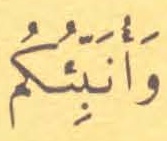 وَأُنَبِّئُكُم